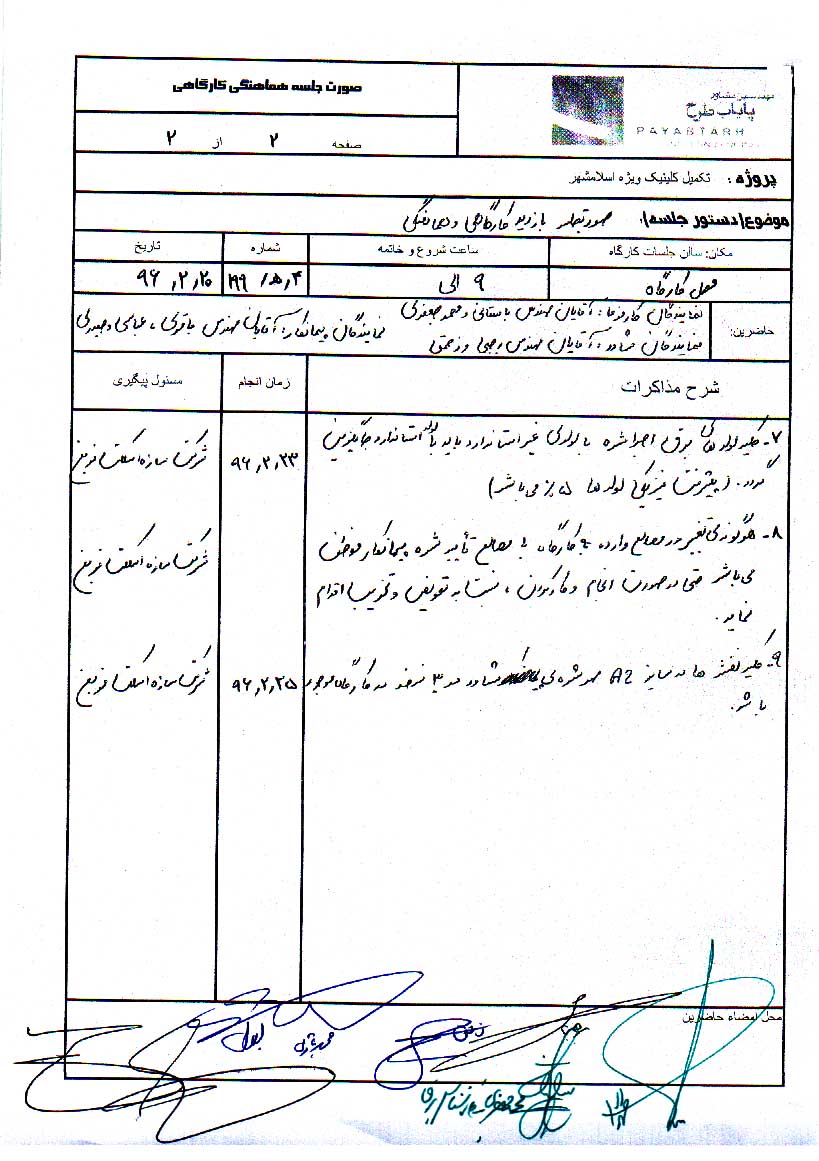 صورت جلسه هماهنگی کارگاهی
مهندسین مشاور
پایاب طرح
PAYABTARH
صفحه ۲ از ۲
پروژه : تکمیل کلینیک ویژه اسلامشهر
موضوع(دستور جلسه): صورتجلسه بازدید کارگاهی و هماهنگی
مکان: سالن جلسات کارگاه ساعت شروع و خاتمه شماره تاریخ
محل کارگاه ۹ الی ۴ر۵/ ۱۹۹ ۹۶٫۲٫۲۰
حاضرین:
نمایندگان کارفرما: آقایان مهندس باستانی و محمدجعفری
نمایندگان پیمانکار: آقایان مهندس باقری ، عباسی و حیدری
نمایندگان مشاور: آقایان مهندس رجبی و
شرح مذاکرات زمان انجام مسئول پیگیری
۷- کلیه لوله های برق اجرا شده با لوله‌ی غیر استاندارد باید با لوله استاندارد جایگزین
گردد. (پیشرفت فیزیکی لوله ها ۵٪ می باشد) ۹۶٫۲٫۲۳ شرکت سازه اسکلت
۸- هرگونه تغییر در مصالح وارده به کارگاه با مصالح تأیید شده پیمانکار موظف
می باشد حتی در صورت انجام و کارکردن ، نسبت به تعویض و تخریب اقدام
نماید. شرکت سازه اسکلت
۹- کلیه نقشه ها در سایز A2 مهر شده‌ی مشاور در ۳ نسخه در کارگاه موجود
باشد. ۹۶٫۲٫۲۵ شرکت سازه اسکلت
محل امضاء حاضرین